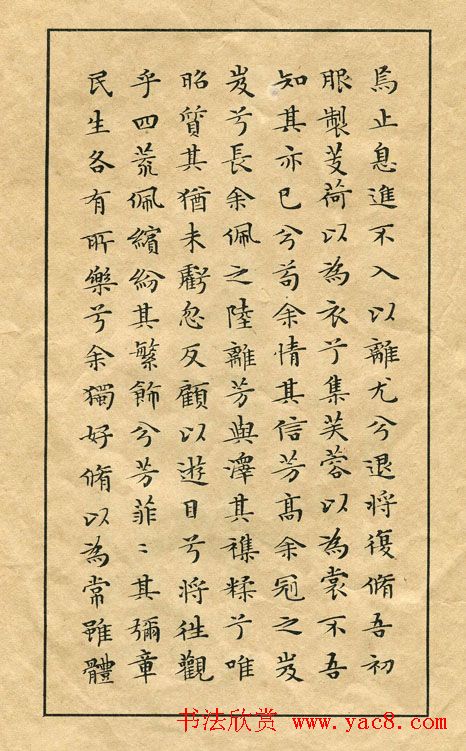 焉止息進不入以離尤兮退将復脩吾初
服製芰荷以為衣兮集芙蓉以為裳不吾
知其亦已兮苟余情其信芳高余冠之岌
岌兮長余佩之陸離芳與澤其襍糅兮唯
昭質其猶未虧忽反顧以遊目兮将往觀
乎四荒佩繽紛其繁飾兮芳菲〻其彌章
民生各有所樂兮余獨好脩以為常雖體
书法欣赏 www.yac8.com